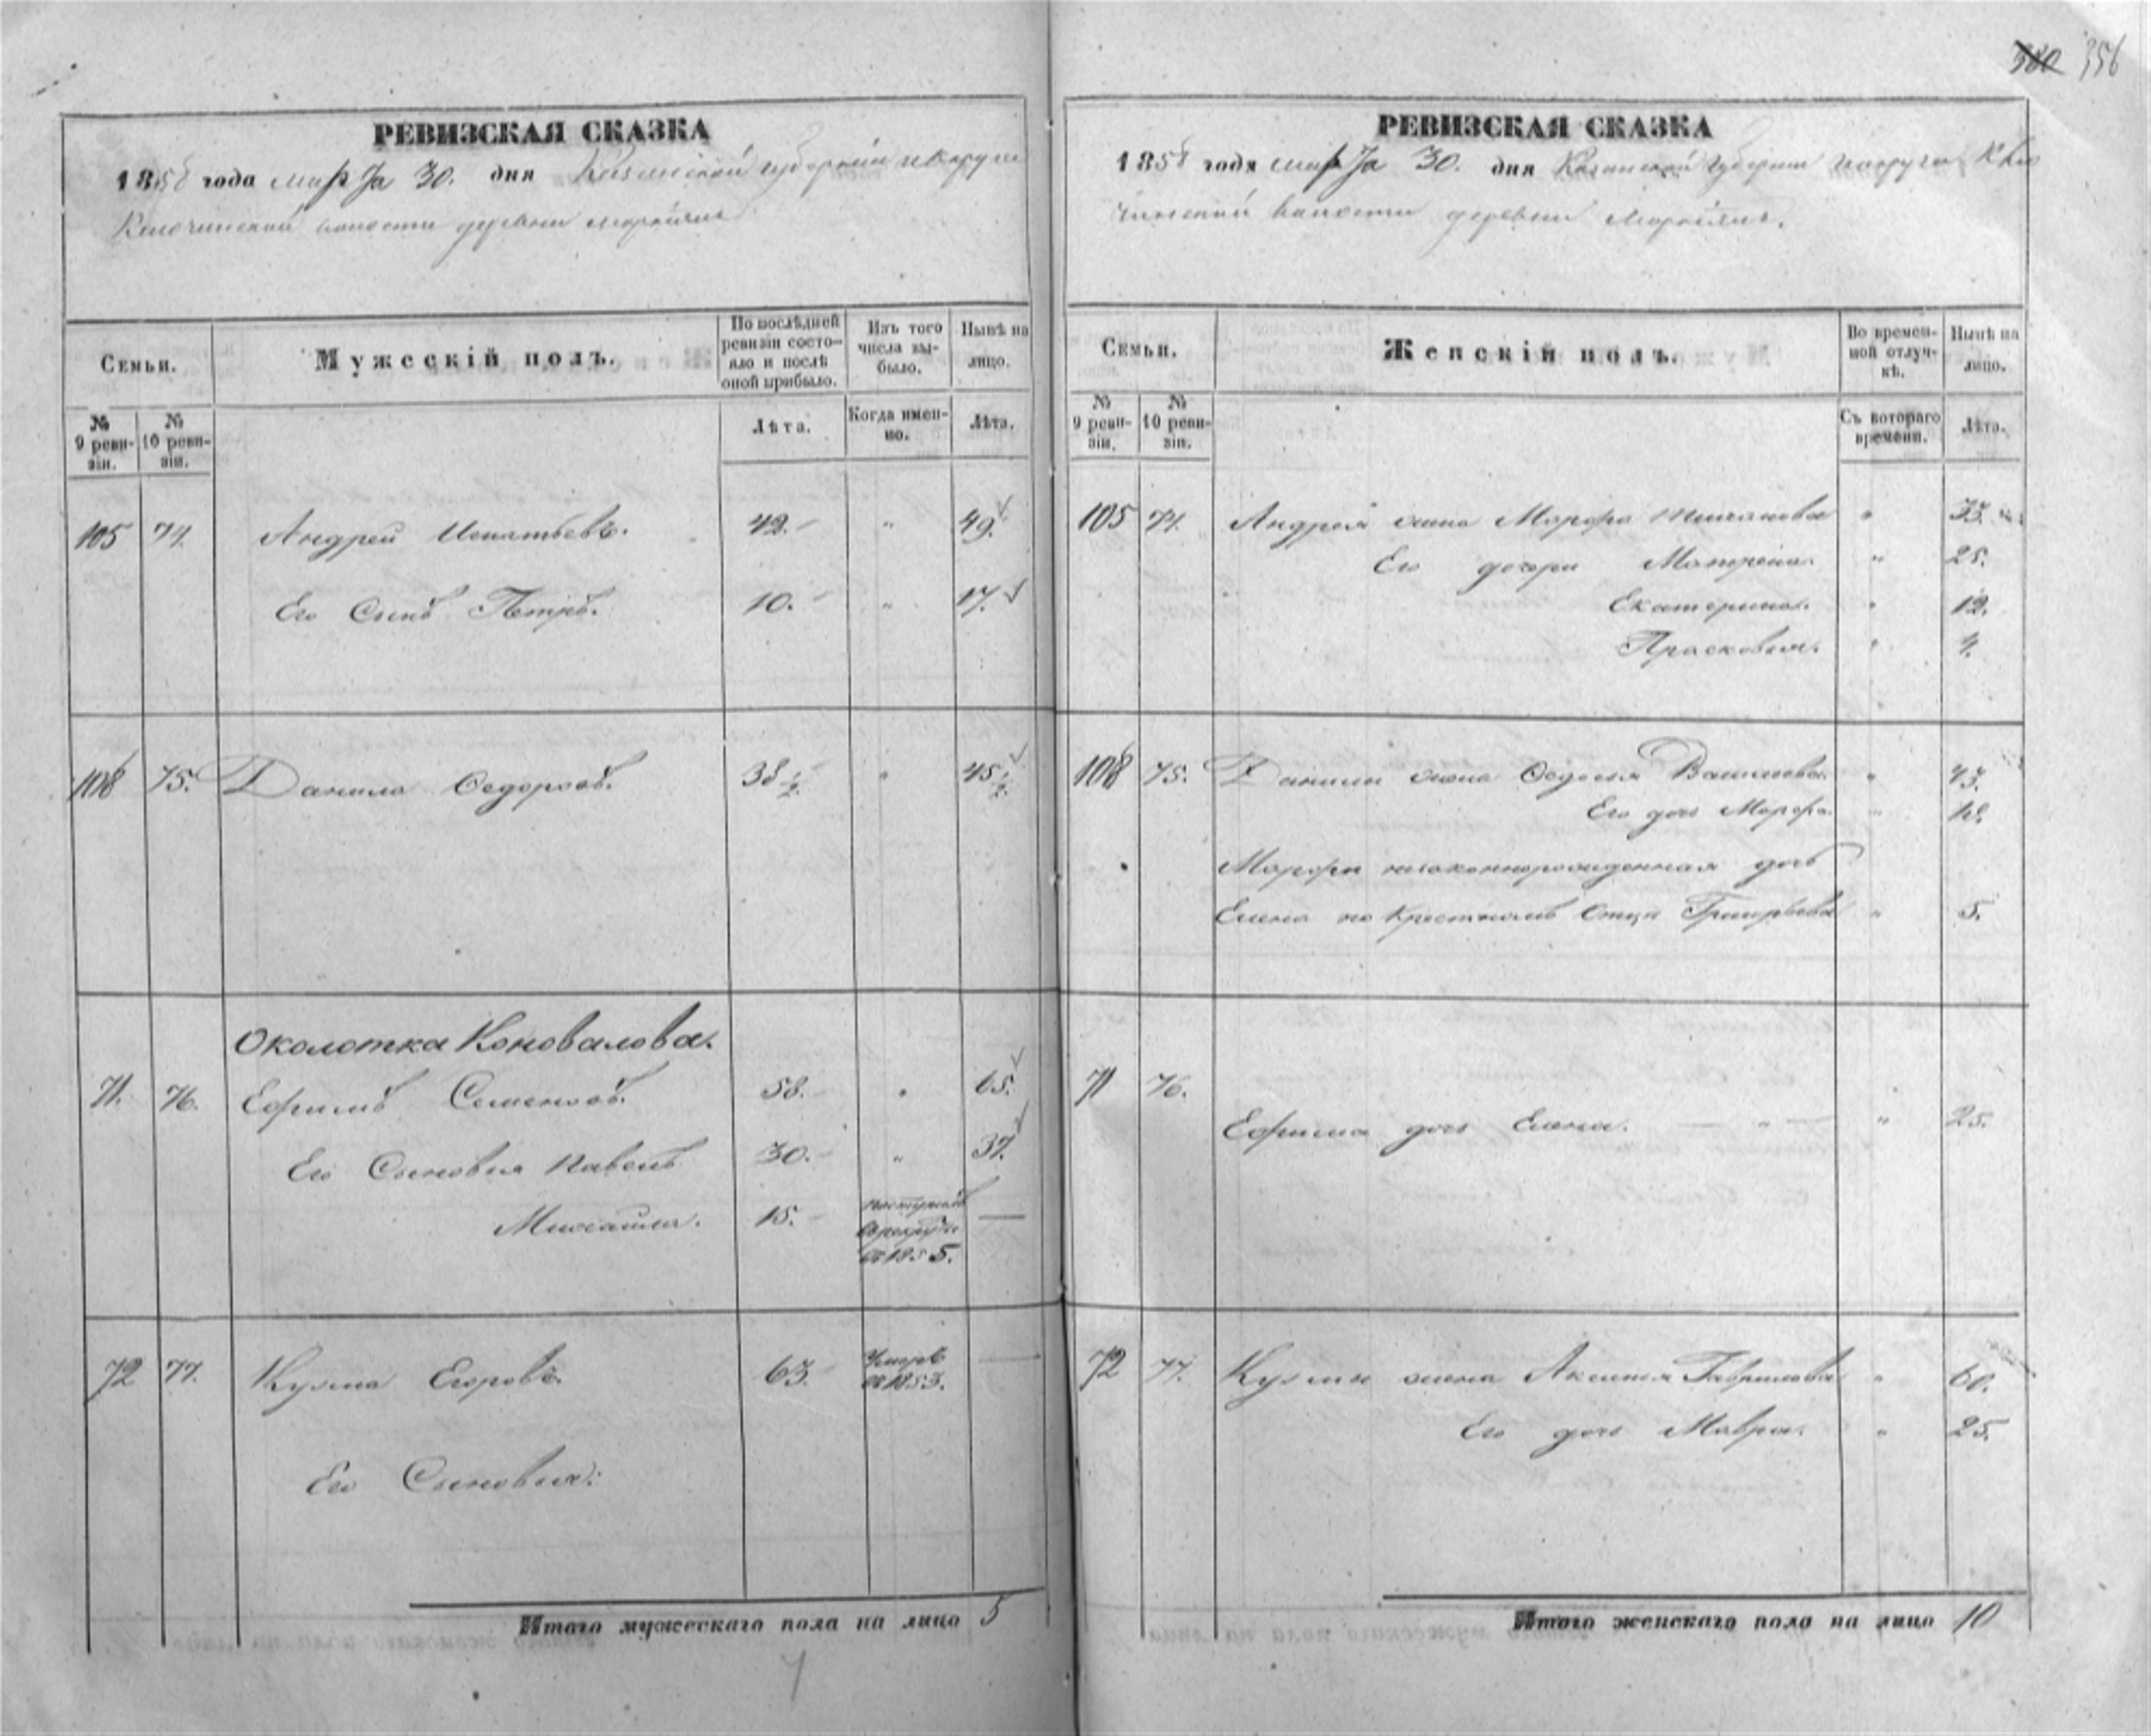 356
РЕВИЗСКАЯ СКАЗКА
1858 года марта 30. дня Казанской губернии и округи
волости деревни
Семьи.
Мужескій полъ.
По послѣдней ревизіи состояло и послѣ оной прибыло.
Изъ того числа выбыло.
Нынѣ на лицо.
№ 9 ревизіи.
№ 10 ревизіи.
Лѣта.
Когда именно.
Лѣта.
105 74. Андрей Игнатьевъ. 42. " 49.
Его Сынъ Петръ. 10. " 17.
108 75. Данила Федоровъ. 38 1/2. " 45 1/2.
Околотка Коновалова.
71. 76. Ефимъ Семеновъ. 58. " 65.
Его Сыновья Павелъ 30. " 37.
Михайла. 15. поступилъ в рекруты в 1855. —
72 77. Кузма Егоровъ. 63. Умеръ в 1853. —
Его Сыновья:
Итого мужескаго пола на лицо 5
РЕВИЗСКАЯ СКАЗКА
1858 года марта 30. дня Казанской губернии и округи
волости деревни
Семьи.
Женскій полъ.
Во временной отлучкѣ.
Нынѣ на лицо.
№ 9 ревизіи.
№ 10 ревизіи.
Съ котораго времени.
Лѣта.
105 74. Андрея жена Марфа "
Его дочери Матрена. " 25.
Екатерина. " 12.
Прасковья. " 4.
108 75. Данилы жена Федосья Васильева. " 43.
Его дочь Марфа. "
Марфы незаконнорожденная дочь
Елена по крестномъ отцѣ Григорьева " 5.
71 76.
Ефима дочь Елена. — " — " 25.
72 77. Кузмы жена Аксинья Гаврилова " 60.
Его дочь Мавра. " 25.
Итого женскаго пола на лицо 10